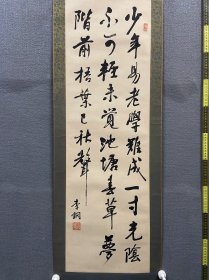 少年易老學難成一寸光陰
不可輕未覺池塘春草夢
階前梧葉已秋聲
李鋼